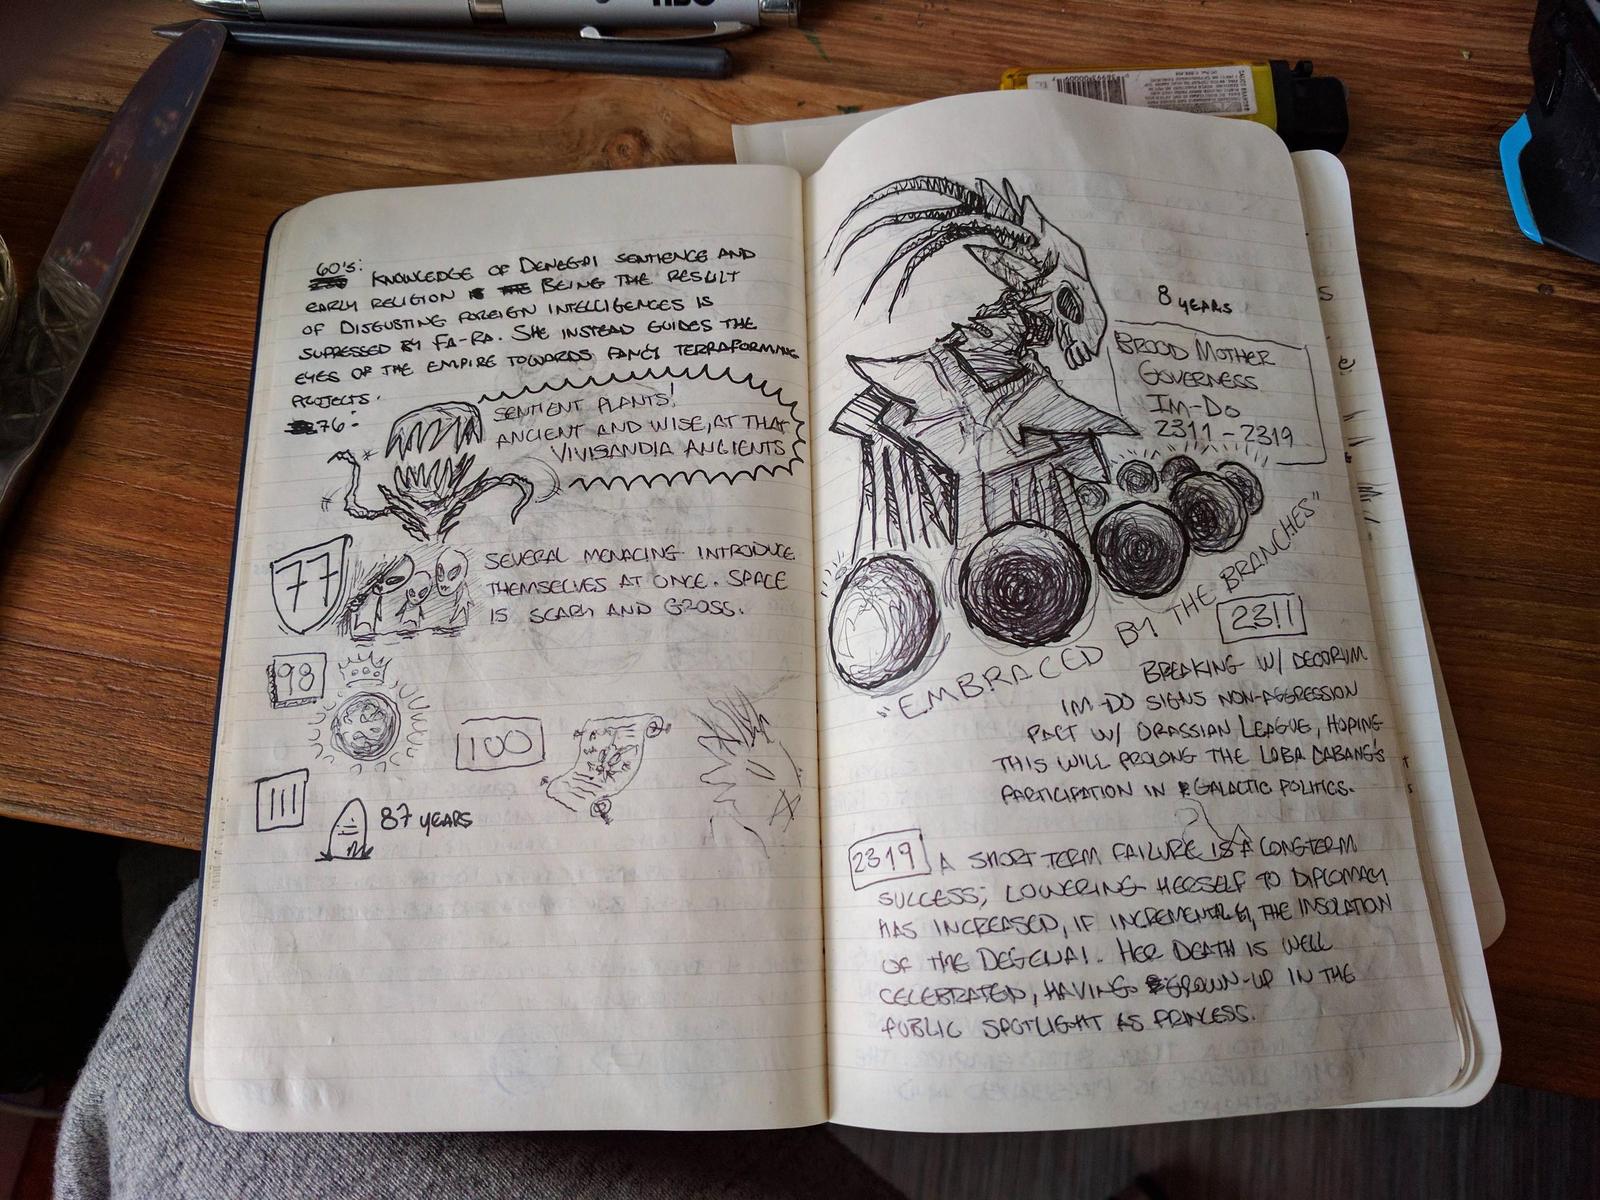 60's: KNOWLEDGE OF DENEGAI SENTIENCE AND
EARLY RELIGION BEING THE RESULT
OF DISGUSTING FOREIGN INTELLIGENCES IS
SUPRESSED BY FA-RA. SHE INSTEAD GUIDES THE
EYES OF THE EMPIRE TOWARDS FANCY TERRAFORMING
PROJECTS.
76:
SENTIENT PLANTS!
ANCIENT AND WISE, AT THAT
VIVISANDIA ANCIENTS
77
SEVERAL MENACING INTRODUCE
THEMSELVES AT ONCE. SPACE
IS SCARY AND GROSS.
98
100
111
87 YEARS
8 YEARS
BROOD MOTHER
GOVERNESS
IM-DO
2311 - 2319
"EMBRACED BY THE BRANCHES"
2311
BREAKING W/ DECORUM
IM-DO SIGNS NON-AGGRESSION
PACT W/ DRASSIAN LEAGUE, HOPING
THIS WILL PROLONG THE LOBA DABANG'S
PARTICIPATION IN GALACTIC POLITICS.
2319 A SHORT TERM FAILURE IS A LONGTERM
SUCCESS; LOWERING HERSELF TO DIPLOMACY
HAS INCREASED, IF INCREMENTALLY, THE INSOLATION
OF THE DEGENAI. HER DEATH IS WELL
CELEBRATED, HAVING GROWN-UP IN THE
PUBLIC SPOTLIGHT AS PRINCESS.